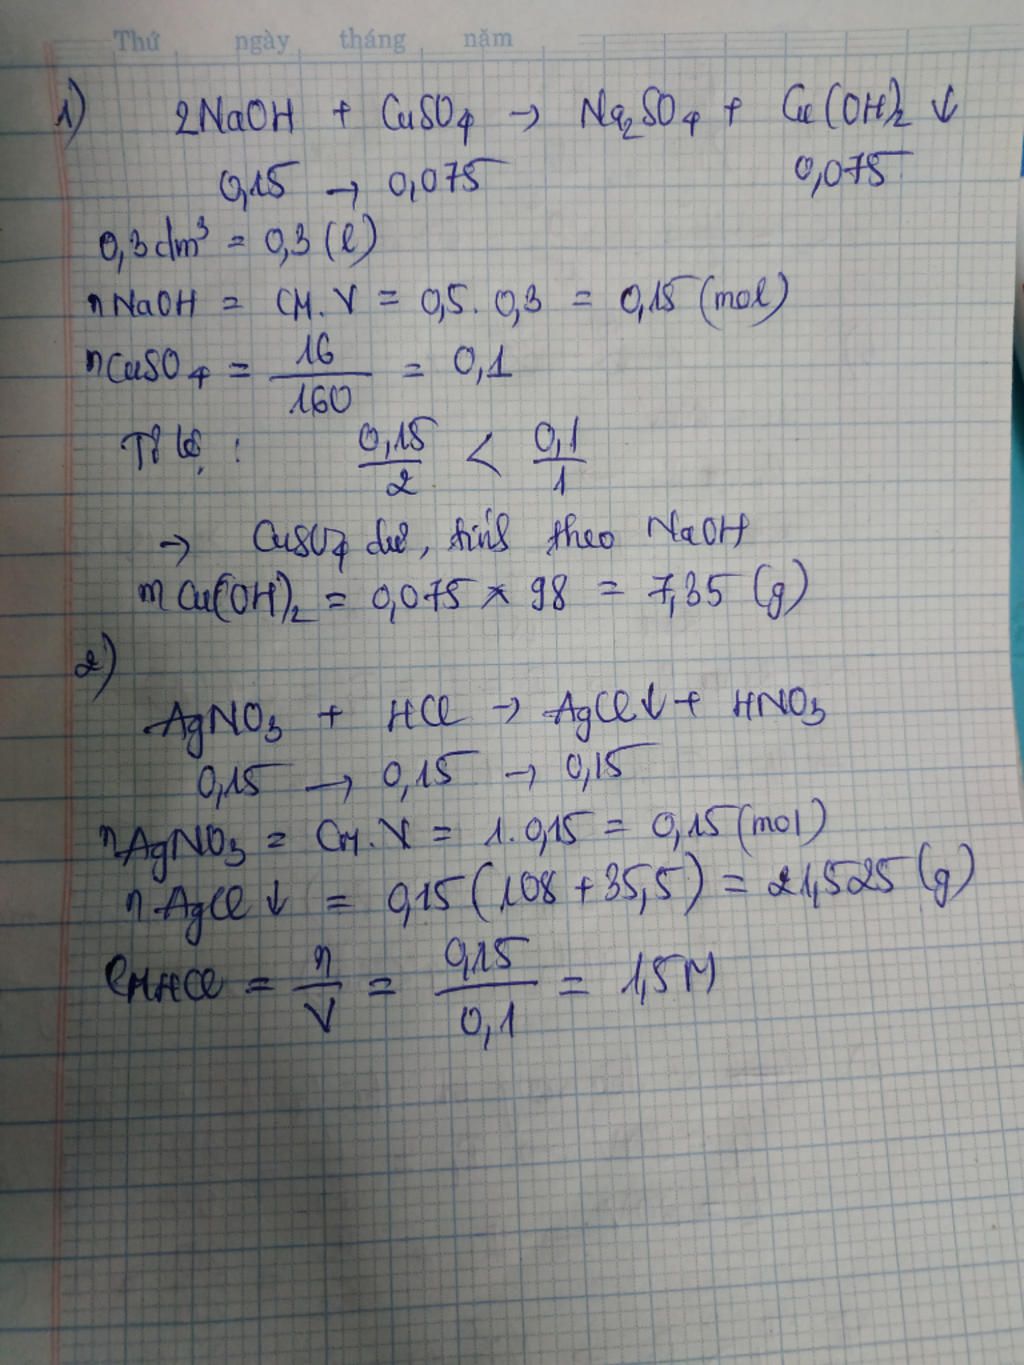 Thứ ngày tháng năm
1) 2NaOH + CuSO4 → Na2SO4 + Cu(OH)2 ↓
0,15 → 0,075 0,075
0,3dm³ = 0,3 (l)
nNaOH = CM.V = 0,5. 0,3 = 0,15 (mol)
nCuSO4 = 16/160 = 0,1
Tỉ lệ : 0,15/2 < 0,1/1
→ CuSO4 dư, tính theo NaOH
mCu(OH)2 = 0,075 × 98 = 7,35 (g)
2)
AgNO3 + HCl → AgCl↓ + HNO3
0,15 → 0,15 → 0,15
nAgNO3 = CM.V = 1. 0,15 = 0,15 (mol)
nAgCl ↓ = 0,15 (108 + 35,5) = 21,525 (g)
CMHCl = n/V = 0,15/0,1 = 1,5M